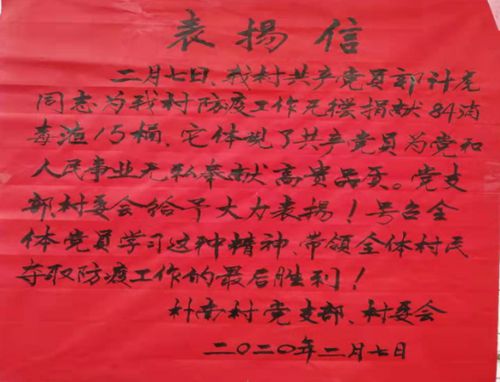 表揚信
二月七日、我村共产党员郭计虎
同志为我村防疫工作无偿捐献84消
毒液15桶，它体现了共产党员为党和
人民事业无私奉献高贵品质。党支
部村委会给予大力表揚！号召全
体党员学习这种精神、带领全体村民
夺取防疫工作的最后胜利！
村党支部、村委会
二〇二〇年二月七日